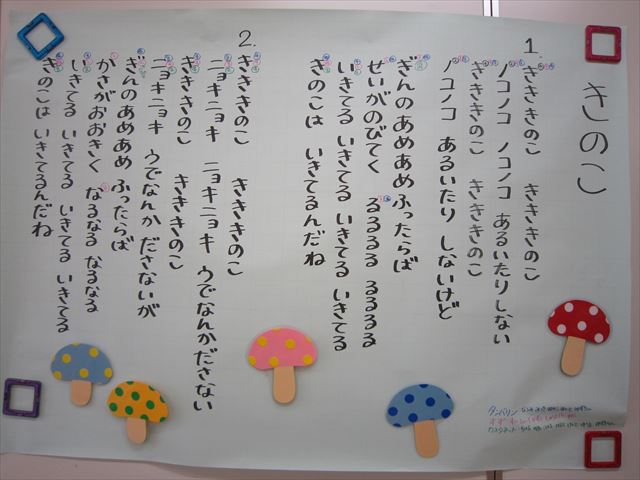 きのこ
1.
きききのこ きききのこ
ノコノコ ノコノコ あるいたりしない
きききのこ きききのこ
ノコノコ あるいたり しないけど
ぎんのあめあめふったらば
せいがのびてく るるるる るるるる
いきてる いきてる いきてる いきてる
きのこは いきてるんだね
2.
きききのこ きききのこ
ニョキニョキ ニョキニョキ うでなんかださない
きききのこ きききのこ
ニョキニョキ うでなんか ださないが
ぎんのあめあめ ふったらば
かさがおおきく なるなる なるなる
いきてる いきてる いきてる いきてる
きのこは いきてるんだね
タンバリン
すず
カスタネット